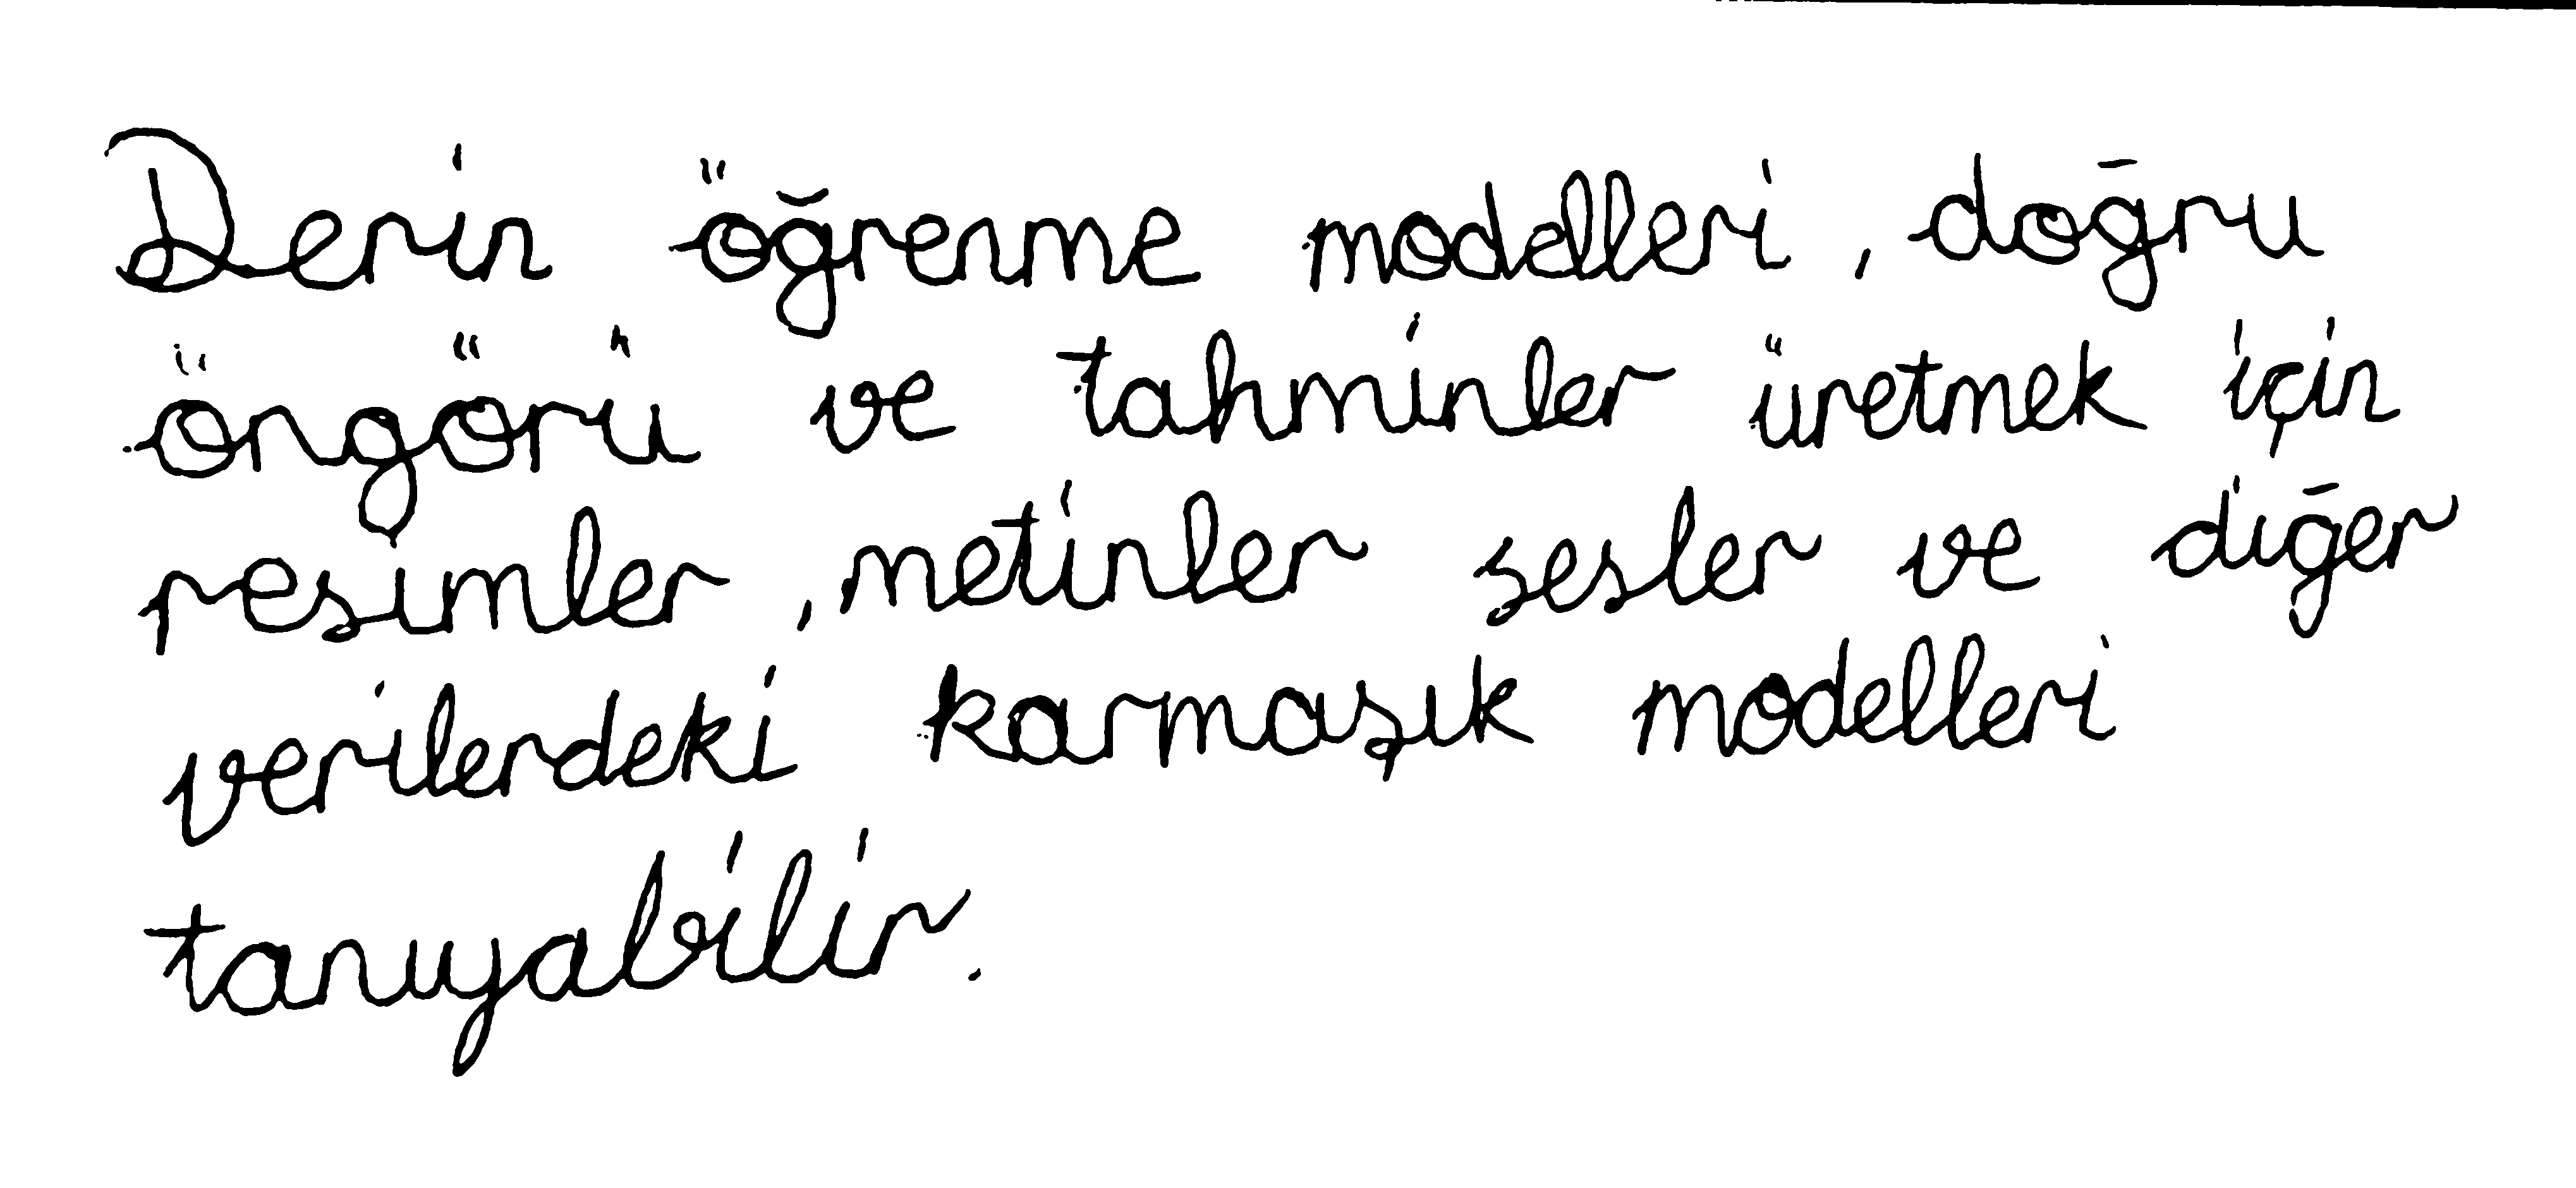 Derin öğrenme modelleri, doğru
öngörü ve tahminler üretmek için
resimler, metinler sesler ve diğer
verilerdeki karmaşık modelleri
tanıyabilir.